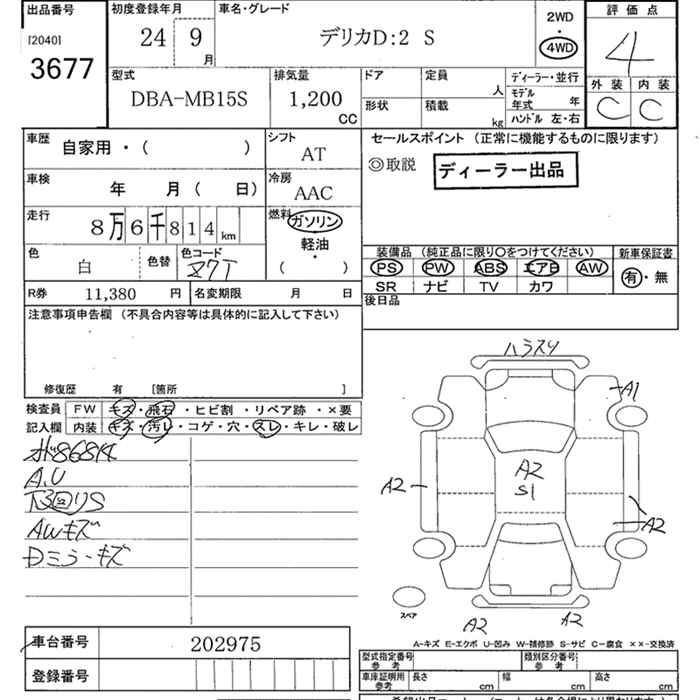 出品番号
[2040]
3677
初度登録年月
24 9 月
車名・グレード
デリカD:2 S
2WD
・
4WD
評価点
4
外装 内装
C C
型式
DBA-MB15S
排気量
1,200
CC
ドア
形状
定員 人
積載 kg
ディーラー・並行
モデル年式 年
ハンドル 左・右
車歴 自家用・( )
シフト
AT
車検 年 月( 日)
冷房
AAC
走行 8万6千814km
燃料
ガソリン
軽油
・
( )
色 白
色替
色コード
Z7T
R券 11,380 円
名変期限 月 日
セールスポイント (正常に機能するものに限ります)
◎取説 ディーラー出品
装備品 (純正品に限り〇をつけてください)
PS PW ABS エアB AW
SR ナビ TV カワ
新車保証書
有・無
後日品
注意事項申告欄 (不具合内容等は具体的に記入して下さい)
修復歴 有 [箇所 ]
検査員記入欄
FW キズ・飛石・ヒビ割・リペア跡・×要
内装 キズ・汚レ・コゲ・穴・スレ・キレ・破レ
A.U
下回りS
AWキズ
Dミラーキズ
ハラスリ
A1
A2
S1
A2
A2
A2
A2
スペア
A-キズ E-エクボ U-凹み W-補修跡 S-サビ C-腐食 ××-交換済
車台番号 202975
登録番号
型式指定番号
参考
類別区分番号
参考
車庫証明用
参考
長さ cm
幅 cm
高さ cm